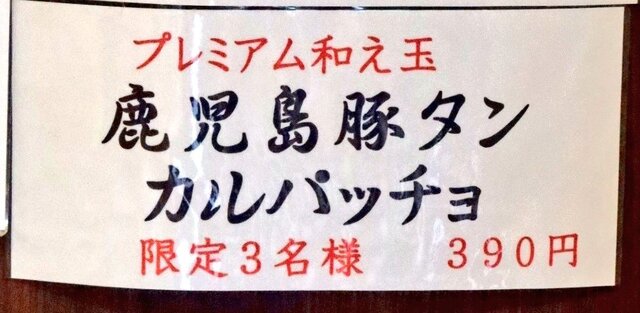 プレミアム和え玉
鹿児島豚タン
カルパッチョ
限定3名様　390円